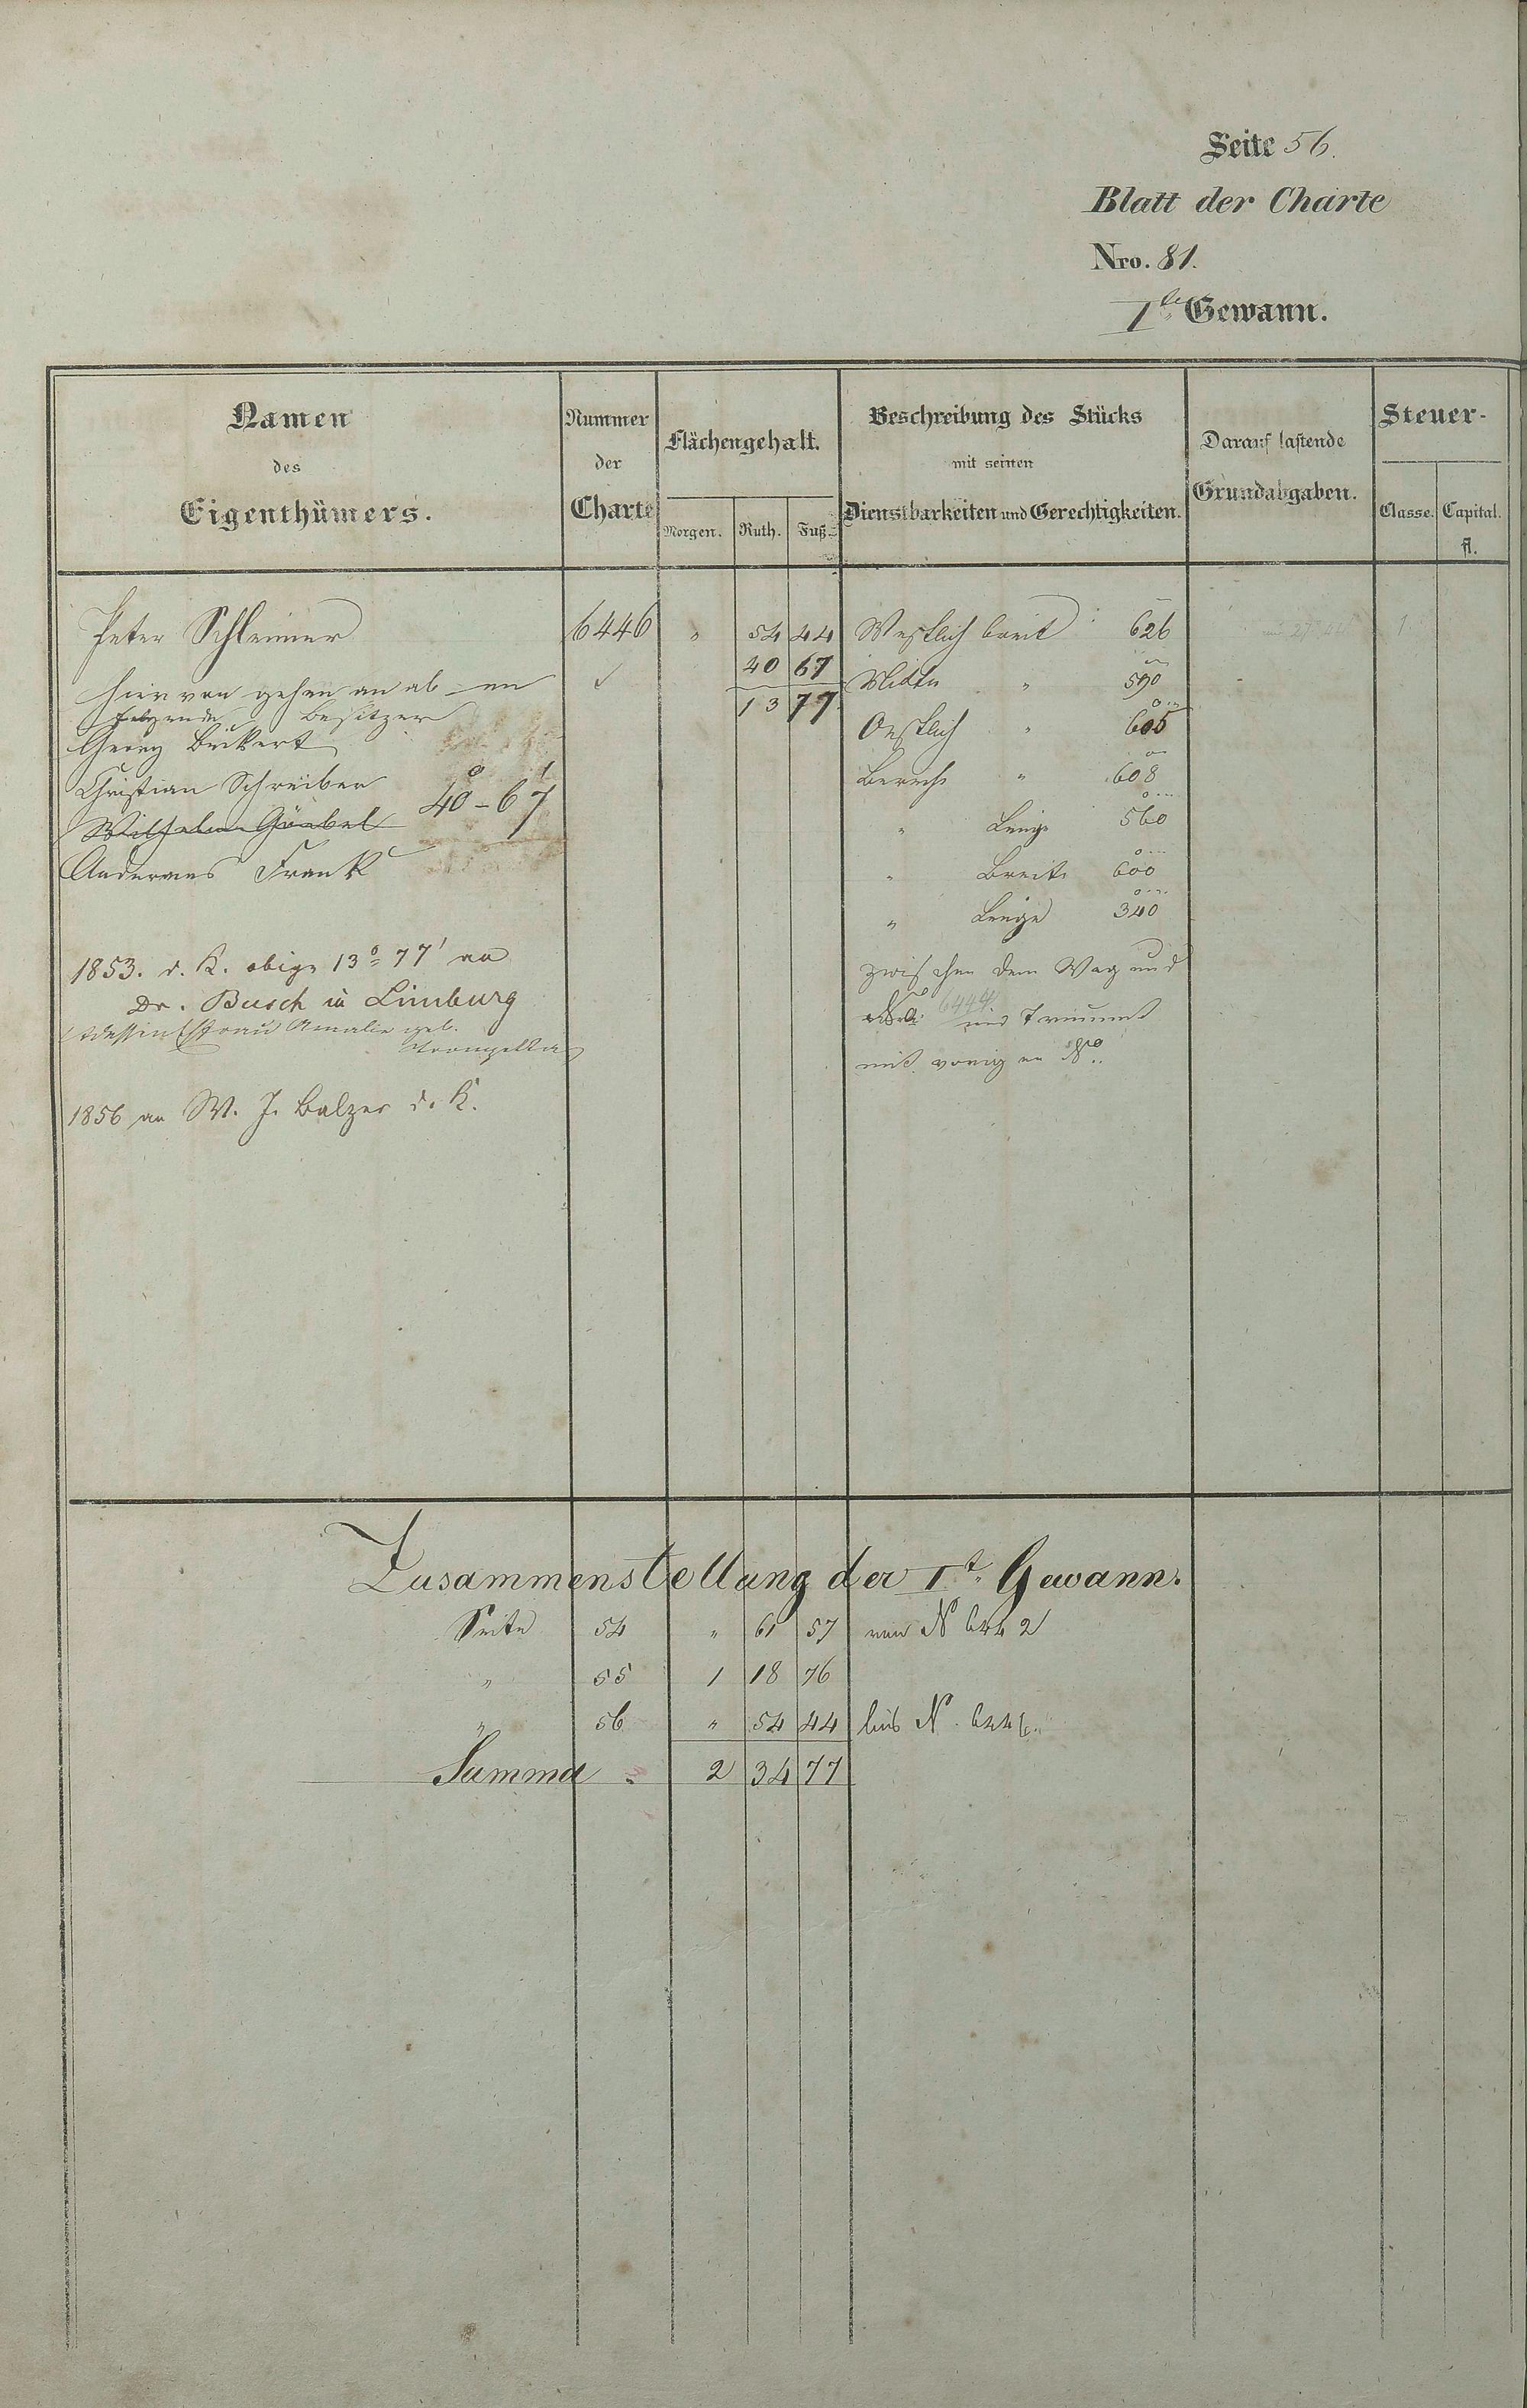 Seite 56.
Blatt der Charte
Nro. 81.
Ite Gewann.
Namen des Eigenthümers.
Nummer der Charte
Flächengehalt.
Morgen. Ruth. Fuß.
Beschreibung des Stücks mit seinen Dienstbarkeiten und Gerechtigkeiten.
Darauf lastende Grundabgaben.
Steuer-
Classe. Capital. fl.
Peter Schleimer 6446 " 54 44 Westlich breit 626
hiervon gehen an ab 40 67 Mitten " 590
folgende Besitzer 13 77
Georg Beikert Oestlich " 605
Christian Schreiber 40° - 67' " 608
Wilhelm Göebel " Länge 560
Andereas Frank " Breite 600
" Länge 340
1853. d. K. obige 13° 77' an zwischen dem Weg und
Dr. Busch in Limburg 6444 und
Ehefrau Amalie geb.
mit vorig en No.
1856 an W. J. Balzer d. K.
Zusammenstellung der It. Gewann.
Seite 54 " 61 57 von N 6442
" 55 1 18 76
" 56 " 54 44 bis N. 6446.
Summa 2 34 77